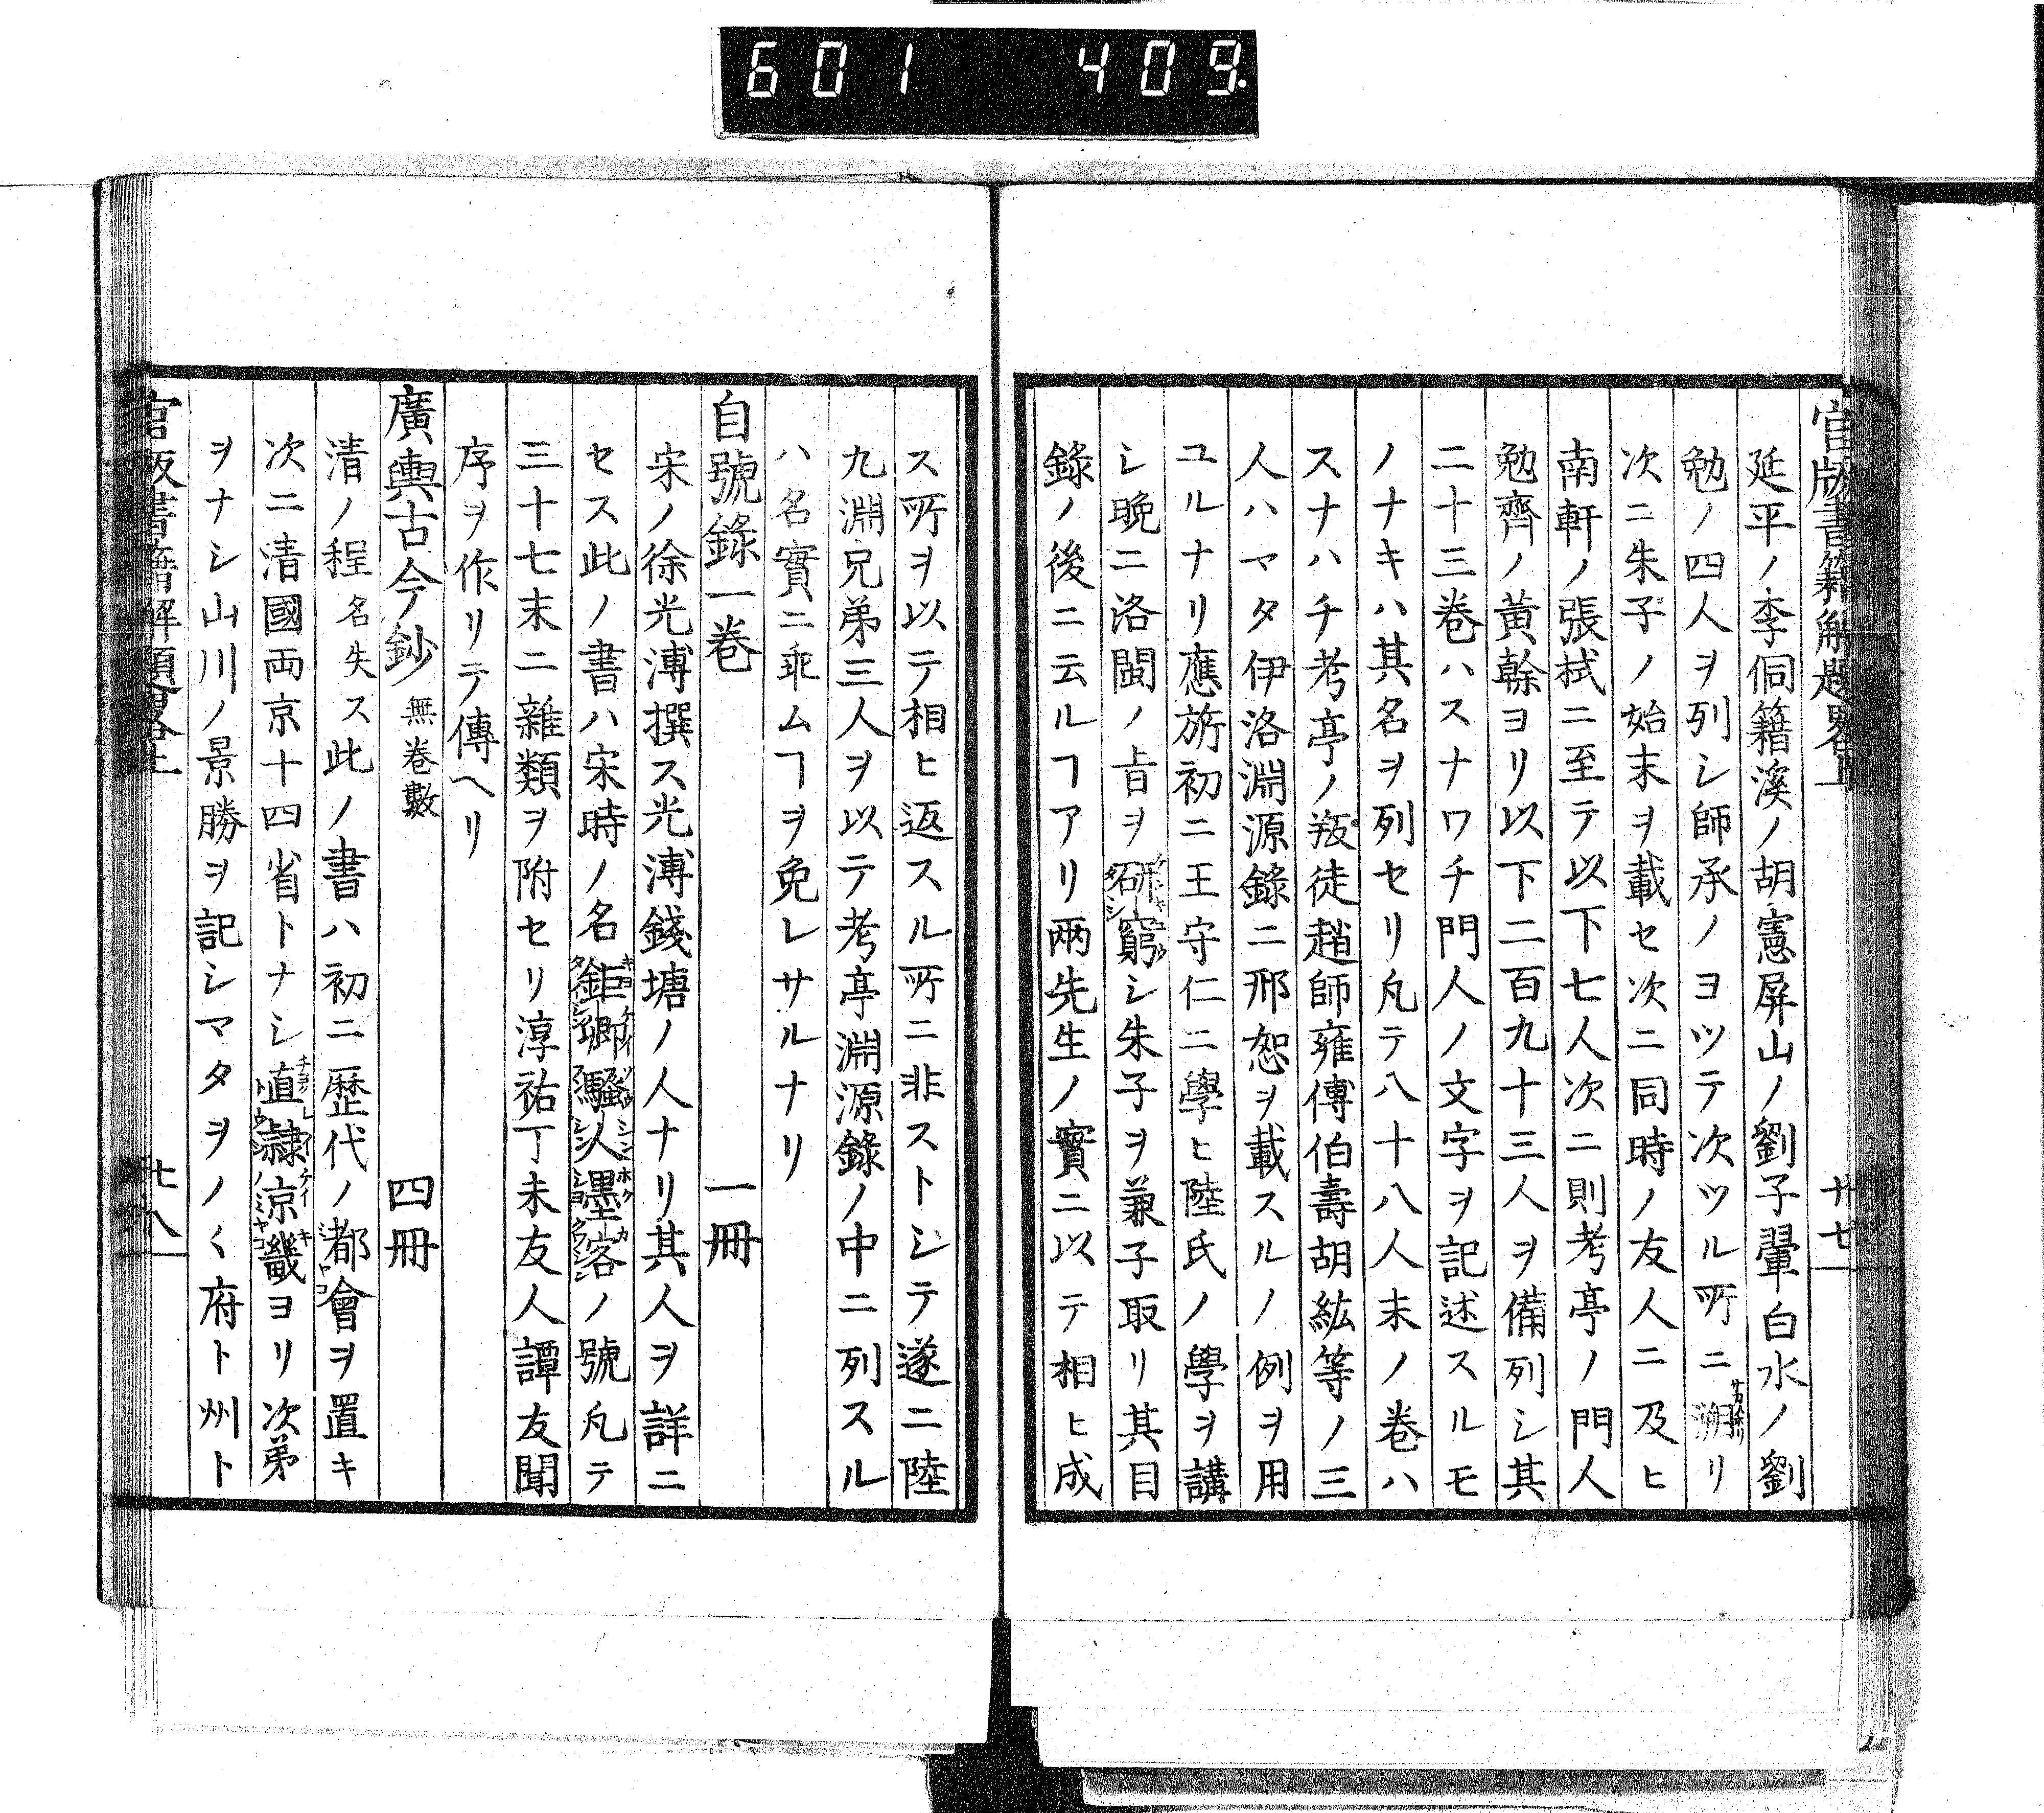 601 409
官版書籍解題畧上 廿七
延平ノ李侗籍溪ノ胡憲屏山ノ劉子翬白水ノ劉
勉ノ四人ヲ列シ師承ノヨツテ次ツル所ニ溯リ
次ニ朱子ノ始末ヲ載セ次ニ同時ノ友人ニ及ヒ
南軒ノ張栻ニ至テ以下七人次ニ則考亭ノ門人
勉齊ノ黃榦ヨリ以下二百九十三人ヲ備列シ其
二十三卷ハスナワチ門人ノ文字ヲ記述スルモ
ノナキハ其名ヲ列セリ凡テ八十八人末ノ卷ハ
スナハチ考亭ノ叛徒趙師雍傅伯壽胡紘等ノ三
人ハマタ伊洛淵源錄ニ邢恕ヲ載スルノ例ヲ用
ユルナリ應旂初ニ王守仁ニ學ヒ陸氏ノ學ヲ講
シ晚ニ洛閩ノ旨ヲ研窮シ朱子ヲ兼子取リ其目
錄ノ後ニ云ルヿアリ兩先生ノ實ニ以テ相ヒ成
ス所ヲ以テ相ヒ返スル所ニ非ストシテ遂ニ陸
九淵兄弟三人ヲ以テ考亭淵源錄ノ中ニ列スル
ハ名實ニ乖ムヿヲ免レサルナリ
自號錄一卷 一冊
宋ノ徐光溥撰ス光溥錢塘ノ人ナリ其人ヲ詳ニ
セス此ノ書ハ宋時ノ名鉅卿騷人墨客ノ號凡テ
三十七末ニ雜類ヲ附セリ淳祐丁未友人譚友聞
序ヲ作リテ傳ヘリ
廣輿古今鈔 無卷數 四冊
清ノ程 名失ス此ノ書ハ初ニ歷代ノ都會ヲ置キ
次ニ清國両京十四省トナシ直隷京畿ヨリ次弟
ヲナシ山川ノ景勝ヲ記シマタヲノく府ト州ト
官版書籍解題畧上 廿八